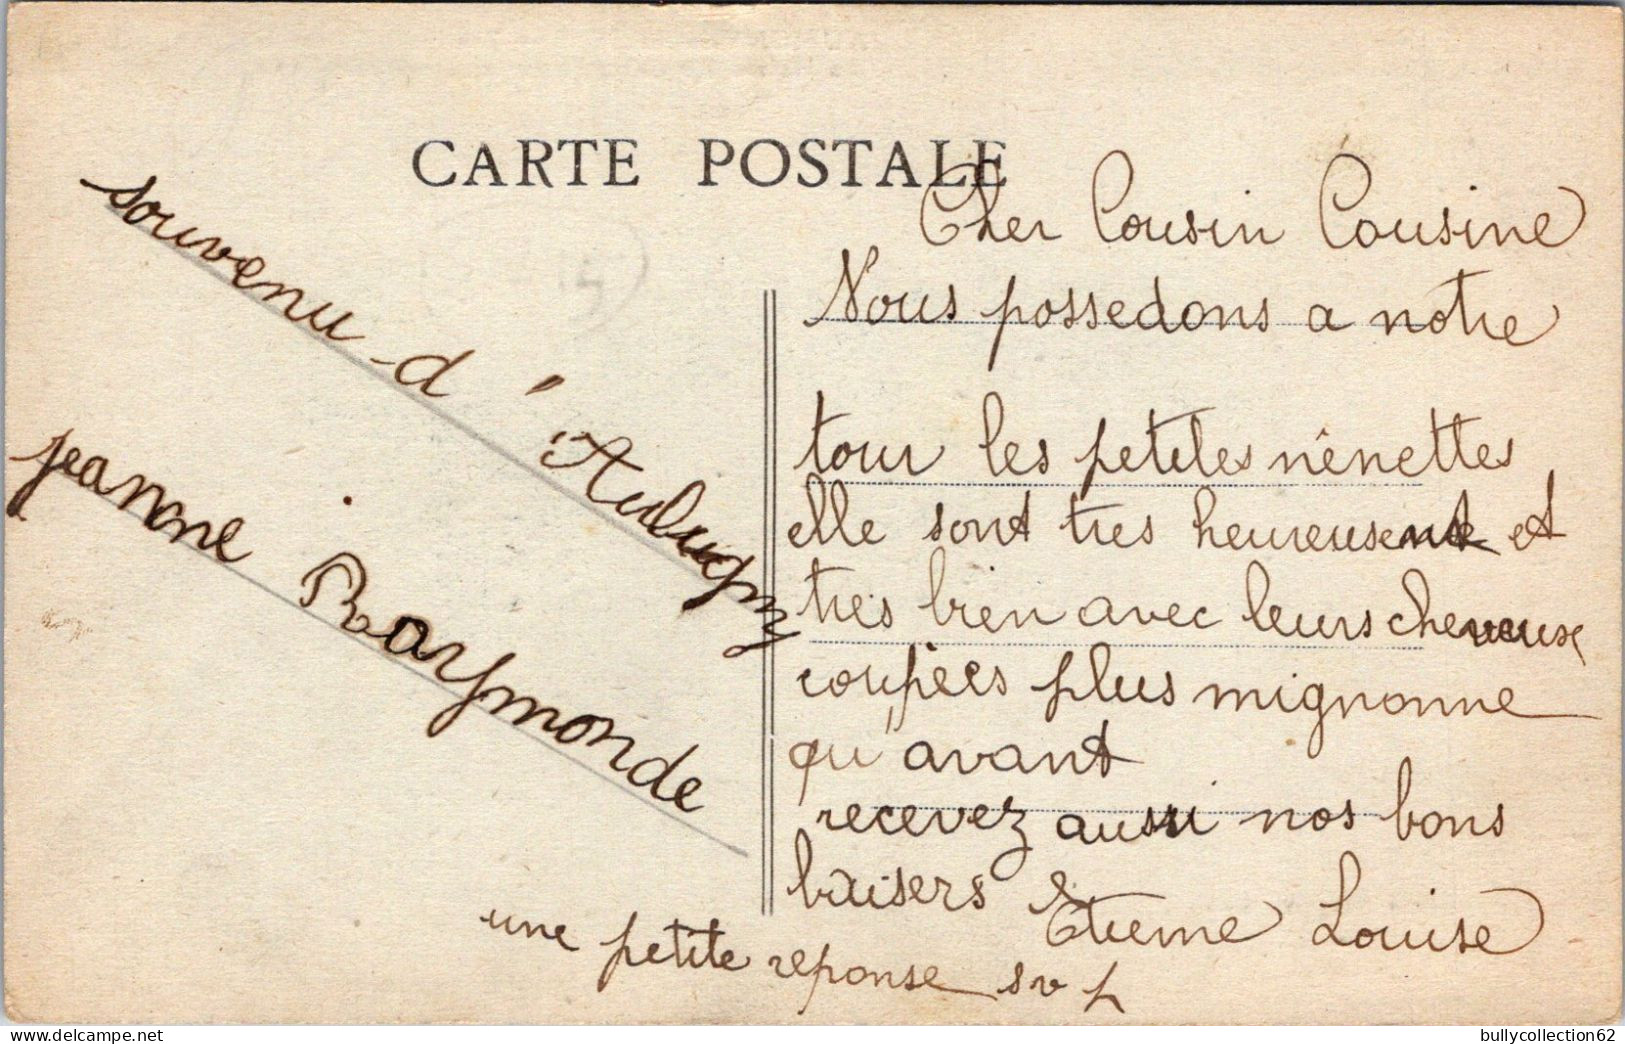 CARTE POSTALE
souvenu d'Aubugny
jeanne Raymonde
Cher Cousin Cousine
Nous possedons a notre
tour les petites nénettes
elle sont tres heureusent et
tres bien avec leurs cheveuse
coupées plus mignonne
qu'avant
recevez aussi nos bons
baisers Etienne Louise
une petite reponse svp
bullycollection62